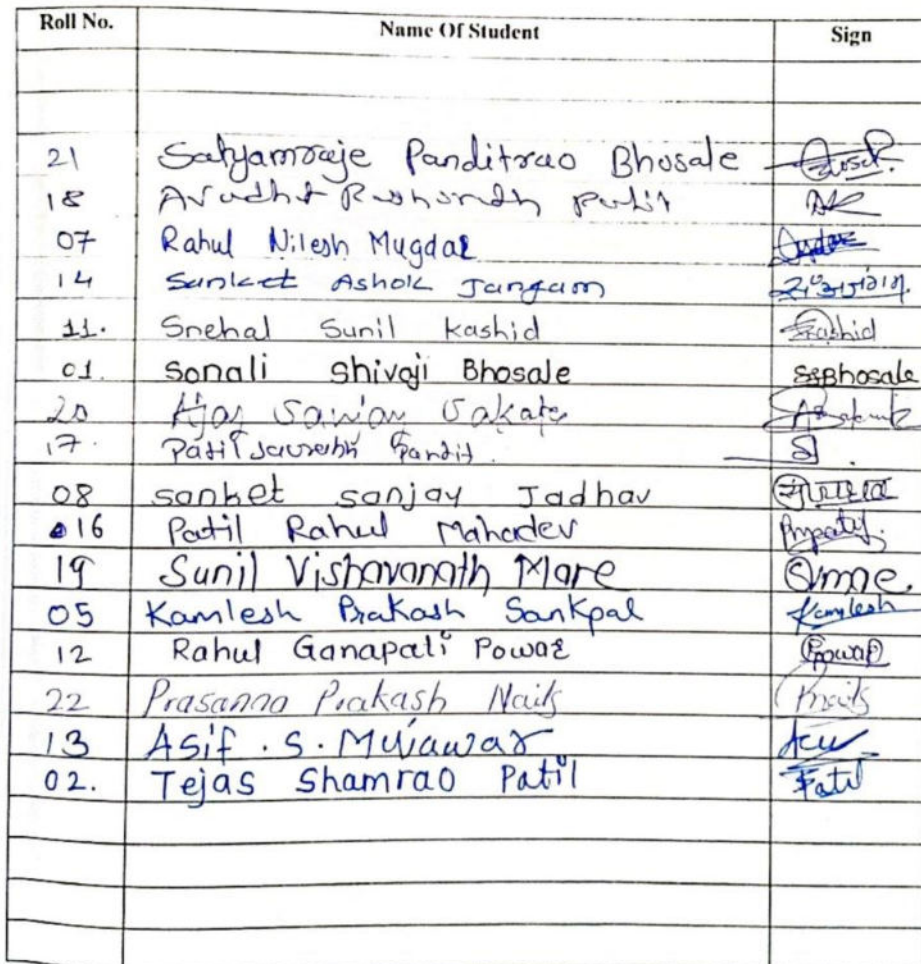 Roll No. Name Of Student Sign
21 Satyamraje Panditrao Bhosale
18 Avadhut patil
07 Rahul Nilesh Mugdal
14 Sanket Ashok Jangam
11. Snehal Sunil Kashid Kashid
01. Sonali Shivaji Bhosale SSBhosale
20 Sakate
17. Patil Saurabh Pandit.
08 sanket sanjay Jadhav
16 Patil Rahul Mahadev
19 Sunil Vishavanath More
05 Kamlesh Prakash Sankpal Kamlesh
12 Rahul Ganapati Powar Powar
22 Prasanna Prakash Naik
13 Asif . S. Mujawar
02. Tejas Shamrao Patil Patil